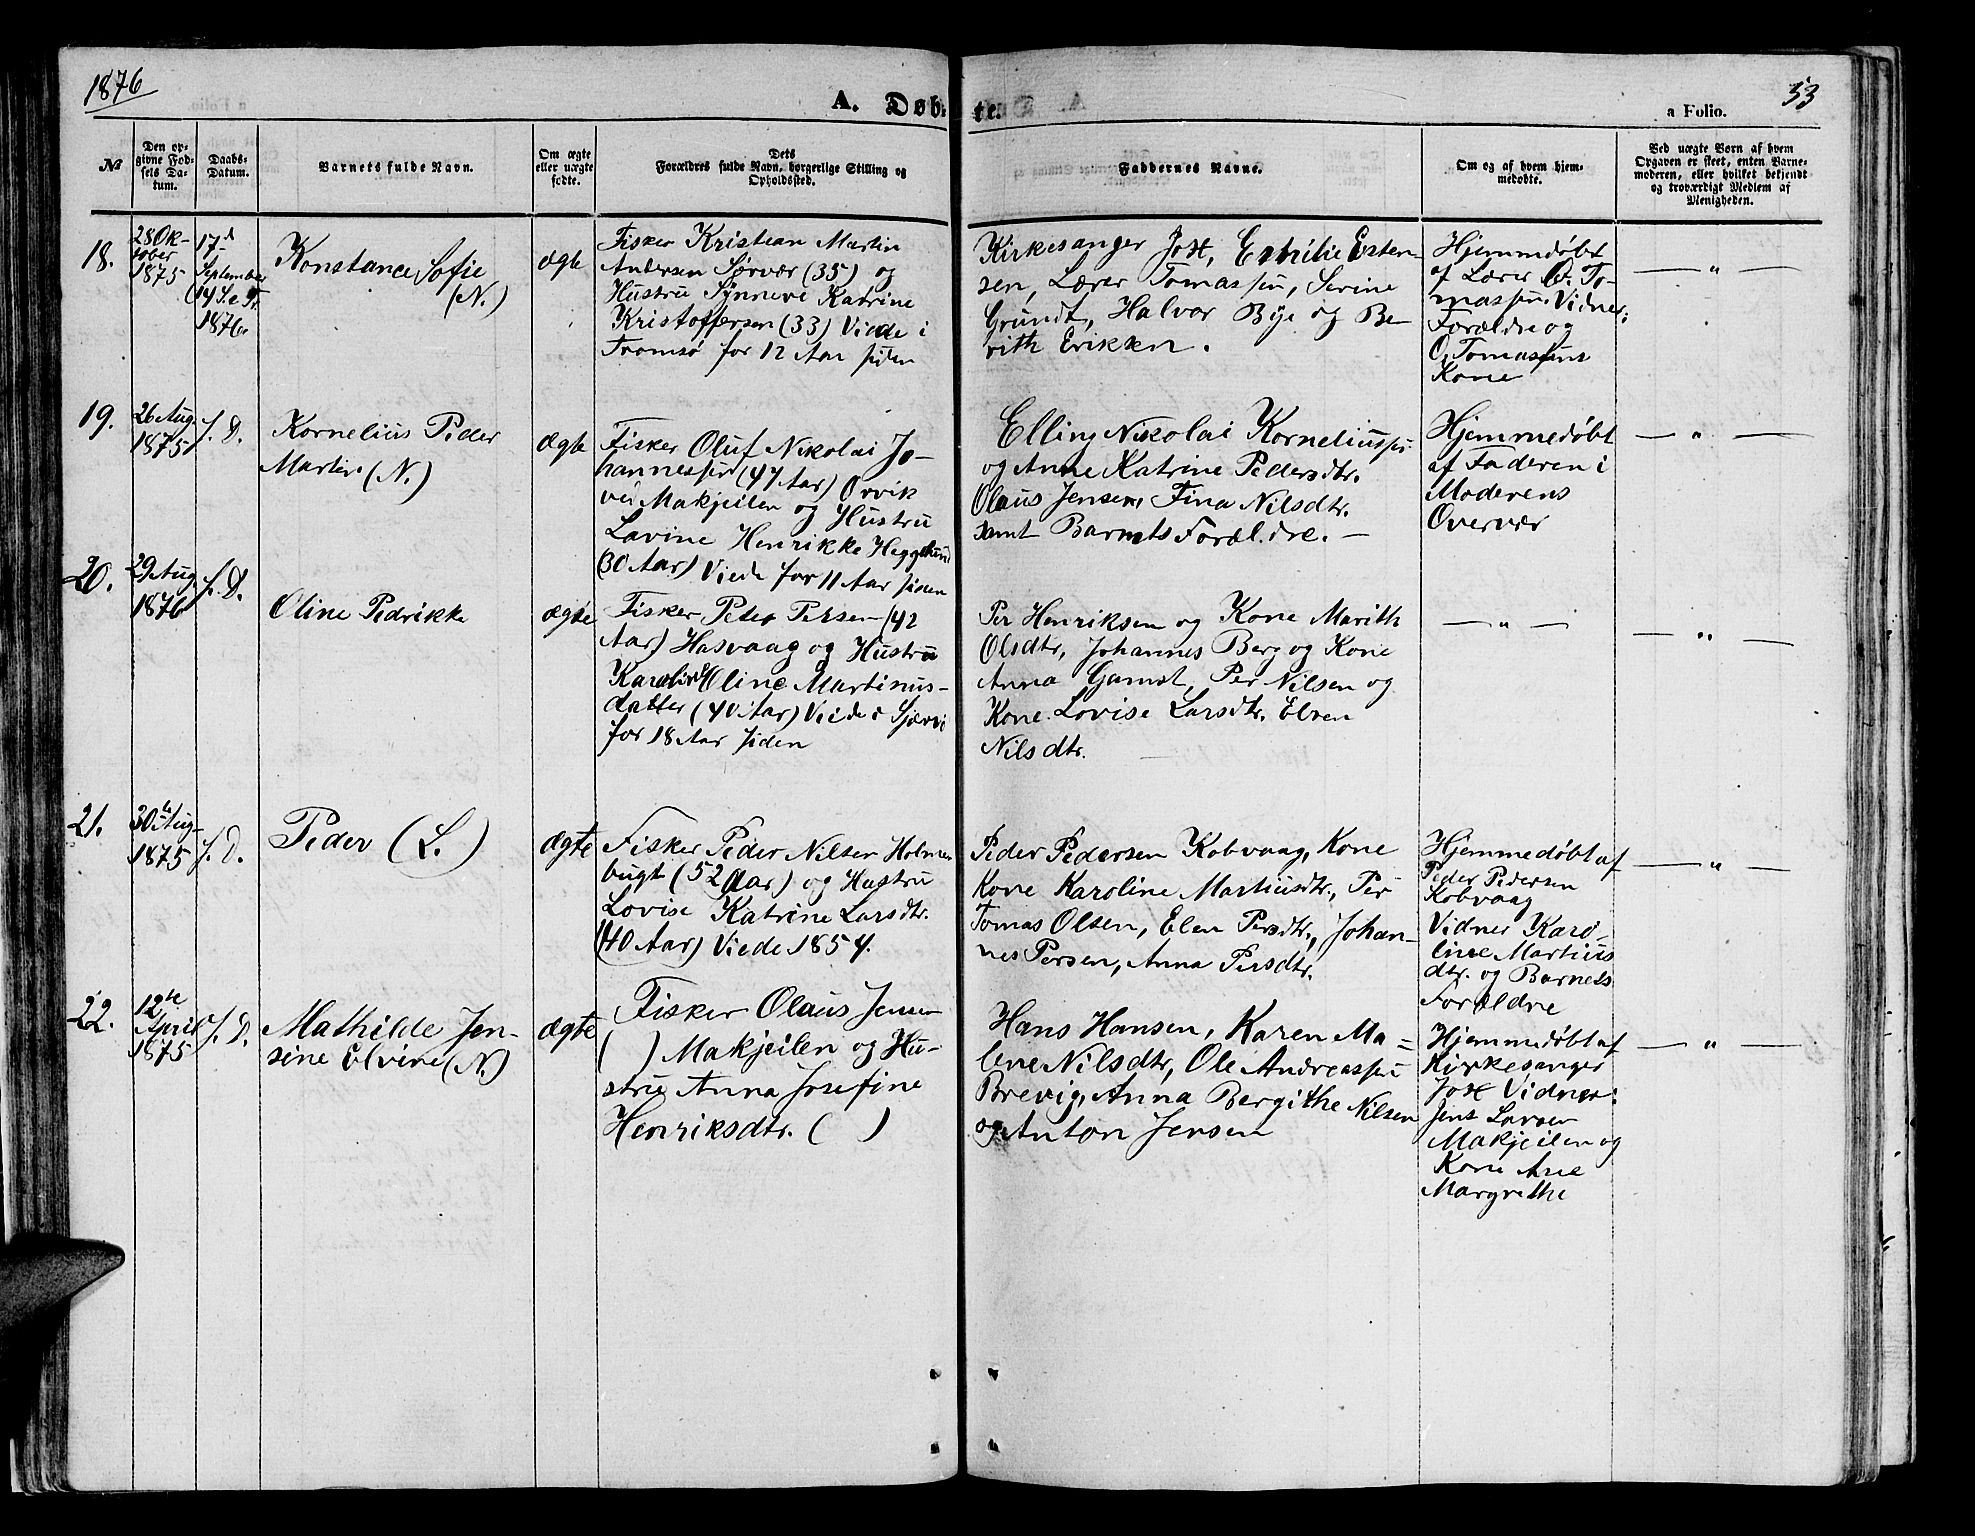 1876
A. Døb-
te.
a Folio.
53
No
Den op-
givne Fød-
sels Da-
tum.
Daabs-
Datum.
Barnets fulde Navn.
Om ægte
eller uægte
fødte.
Dets
Forældres fulde Navn, borgerlige Stilling og
Opholdssted.
Faddernes Navne.
Om og af hvem hjem-
medøbte.
Ved uægte Børn af hvem
Opgaven er skeet, enten Barne-
moderen, eller hvilket bekjendt
og troværdigt Medlem af
Menigheden.
18.
28 Ok-
tober
1875
17d
September
(14 S. e Tr.
1876.
Konstance Sofie
(N.)
ægte
Fisker Kristian Martin
Andersen Sørvær (35) og
Hustru Synneve Katrine
Kristoffersen (33) Viede i
Tromsø for 12 Aar siden
Kirkesanger Jost, Emilie Esten-
sen, Lærer Tomassen, Serine
Grundt, Halvor Bye og Be-
rith Eriksen.
Hjemmedøbt
af Lærer O. To-
massen. Vidner:
Forældre og
O. Tomassens
Kone
— " —
19.
26 Aug.
1875
s. D.
Kornelius Peder
Martin (N.)
ægte
Fisker Oluf Nikolai Jo-
hannessen (47 Aar) Orvik
ved Makjeilen og Hustru
Lavine Henrikke Heggelund
(30 Aar) Viede for 11 Aar siden
Elling Nikolai Korneliussen
og Anne Katrine Pedersdtr.
Olaus Jensen, Fina Nilsdtr.
samt Barnets Forældre. —
Hjemmedøbt
af Faderen i
Moderens
Overvær
— " —
20.
29 Aug.
1876
s. D.
Oline Pedrikke
ægte
Fisker Peter Persen (42
Aar) Hasvaag og Hustru
Karen Oline Martinus-
datter (40 Aar) Viede i
for 18 Aar siden
Per Henriksen og Kone Marith
Olsdtr, Johannes Berg og Kone
Anna Gamst, Per Nilsen og
Kone Lovise Larsdtr. Elen
Nilsdtr.
— " —
— " —
21.
30te Aug.
1875
s. D.
Peder (L.)
ægte
Fisker Peder Nilsen Holmen
bugt (52 Aar) og Hustru
Lovise Katrine Larsdtr.
(40 Aar) Viede 1854.
Peder Pedersen Kobvaag, Kone
Kone Karoline Martiusdtr., Per
Tomas Olsen, Elen Persdtr., Johan-
nes Persen, Anna Persdtr.
Hjemmedøbt af
Peder Pedersen
Kobvaag
Vidner Karo-
line Martius
dtr. og Barnets
Forældre
— " —
22.
12te
April
1875
s. D.
Mathilde Jen-
sine Elvine (N.)
ægte
Fisker Olaus Jensen
( ) Makjeilen og Hu-
stru Anna Josefine
Henriksdtr. ( )
Hans Hansen, Karen Ma-
lene Nilsdtr, Ole Andreassen
Brevig, Anna Bergithe Nilsen
og Anton Jensen
Hjemmedøbt af
Kirkesanger
Jost Vidner:
Jens Larsen
Makjeilen og
Kone Ane
Margrethe
— " —